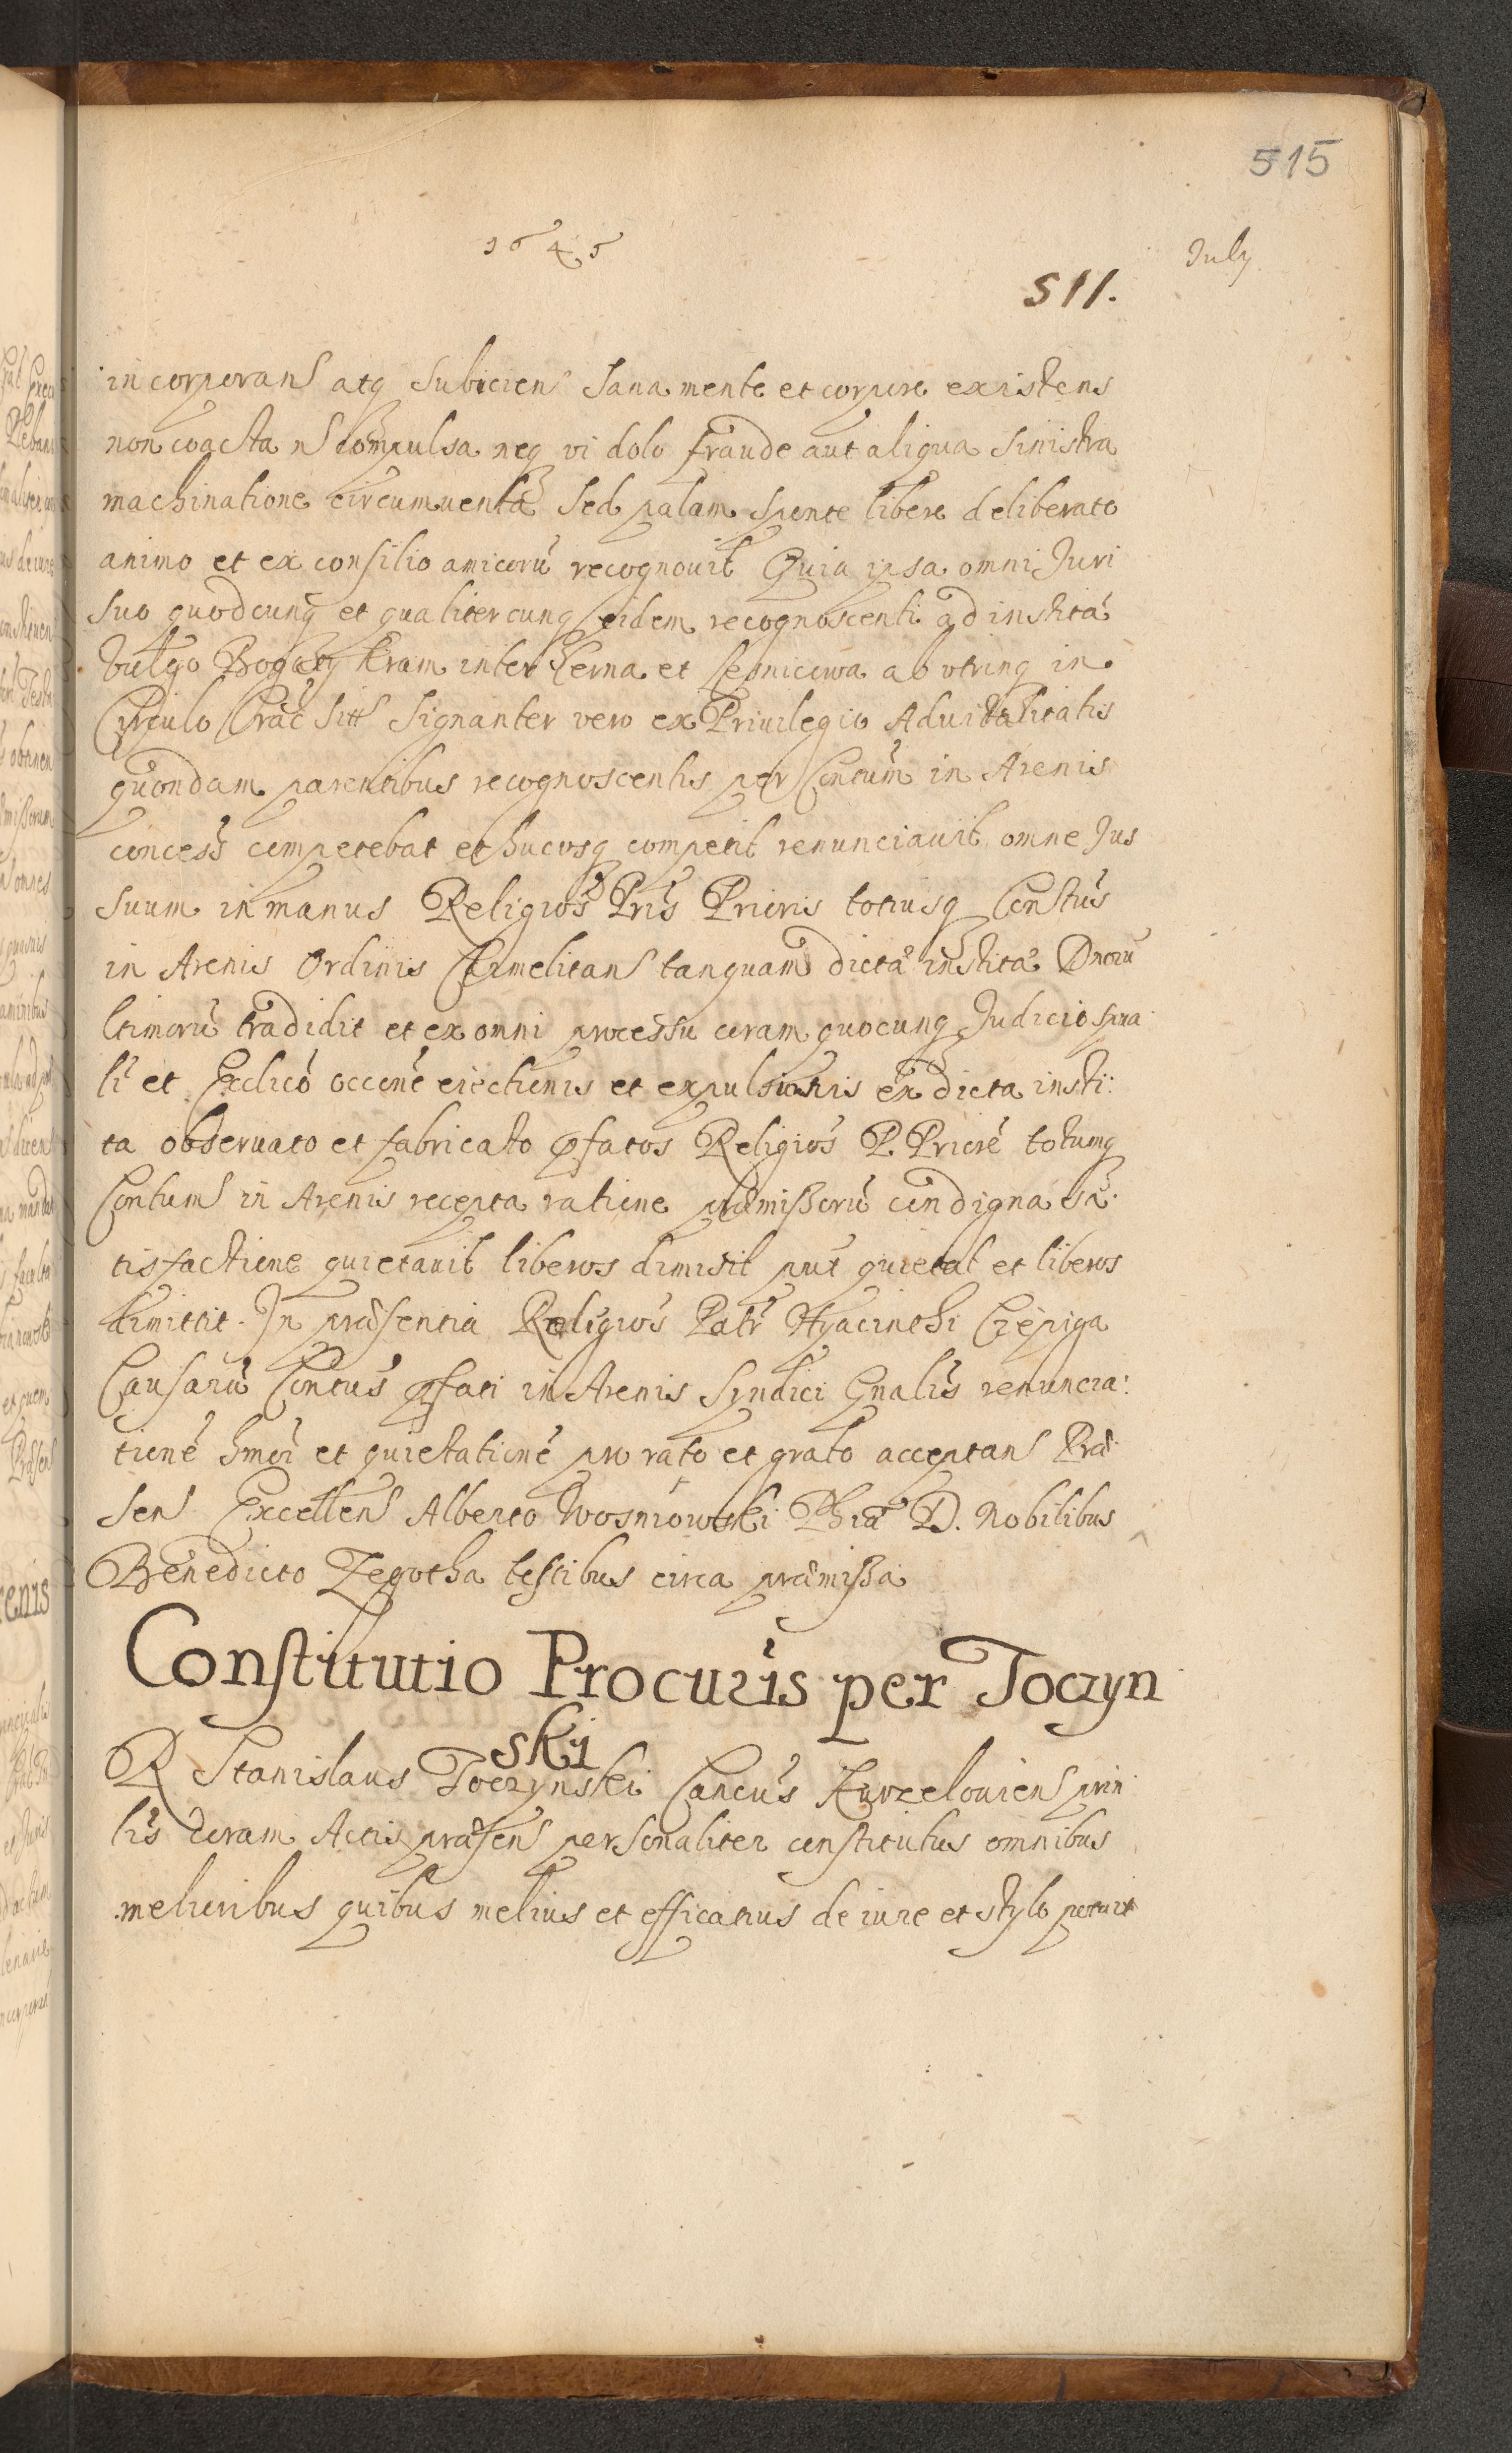 515
1645
July
511.
incorporans atq subiciens sana mente et corpore existens
non coacta nec compulsa neq vi dolo fraude aut aliqua sinistra
machinatione circumuenta sed palam sponte libere deliberato
animo et ex consilio amicorū recognouit Quia ipsa omni Juri
suo quodcunq et qualitercunq eidem recognoscenti ad institā
vulgo Bogaty kram inter et ab vtrinq in
Circulo Crac sitt signanter vero ex Priuilegio Aduitalitatis
quondam parentibus recognoscentis per Contum in Arenis
concess competebat et hucusq competit renunciauit omne Jus
suum in manus Religios Pris Prioris totiusq Constus
in Arenis Ordinis Carmelitans tanquam dictā institā Dnorū
ltimorū tradidit et ex omni processu coram quocunq Judicio spua
li et occone eiectionis et expulsionis ex dicta insti:
ta obseruato et fabricato pfatos Religios P. Priorē totumq
Contums in Arenis recepta ratione præmissorū condigna sa
tisfactione quietauit liberos dimisit put quietat et liberos
dimittit. In præsentia Religios Patr Hyacinthi Czepiga
Causarū Contus pfati in Arenis Syndici Gnalis renuncia:
tionē hmoi et quietationē pro rato et grato acceptans Præ
sen Excellen Alberto Wosniowski Phiæ D. Nobilibus
Benedicto Zegotha testibus circa præmissa
Constitutio Procuris per Toczyn
ski
R Stanislaus Toczynski Cancus Kurzelouiens prin
lis coram Actis præsen personaliter constitutus omnibus
melioribus quibus melius et efficatius de iure et stylo potuit